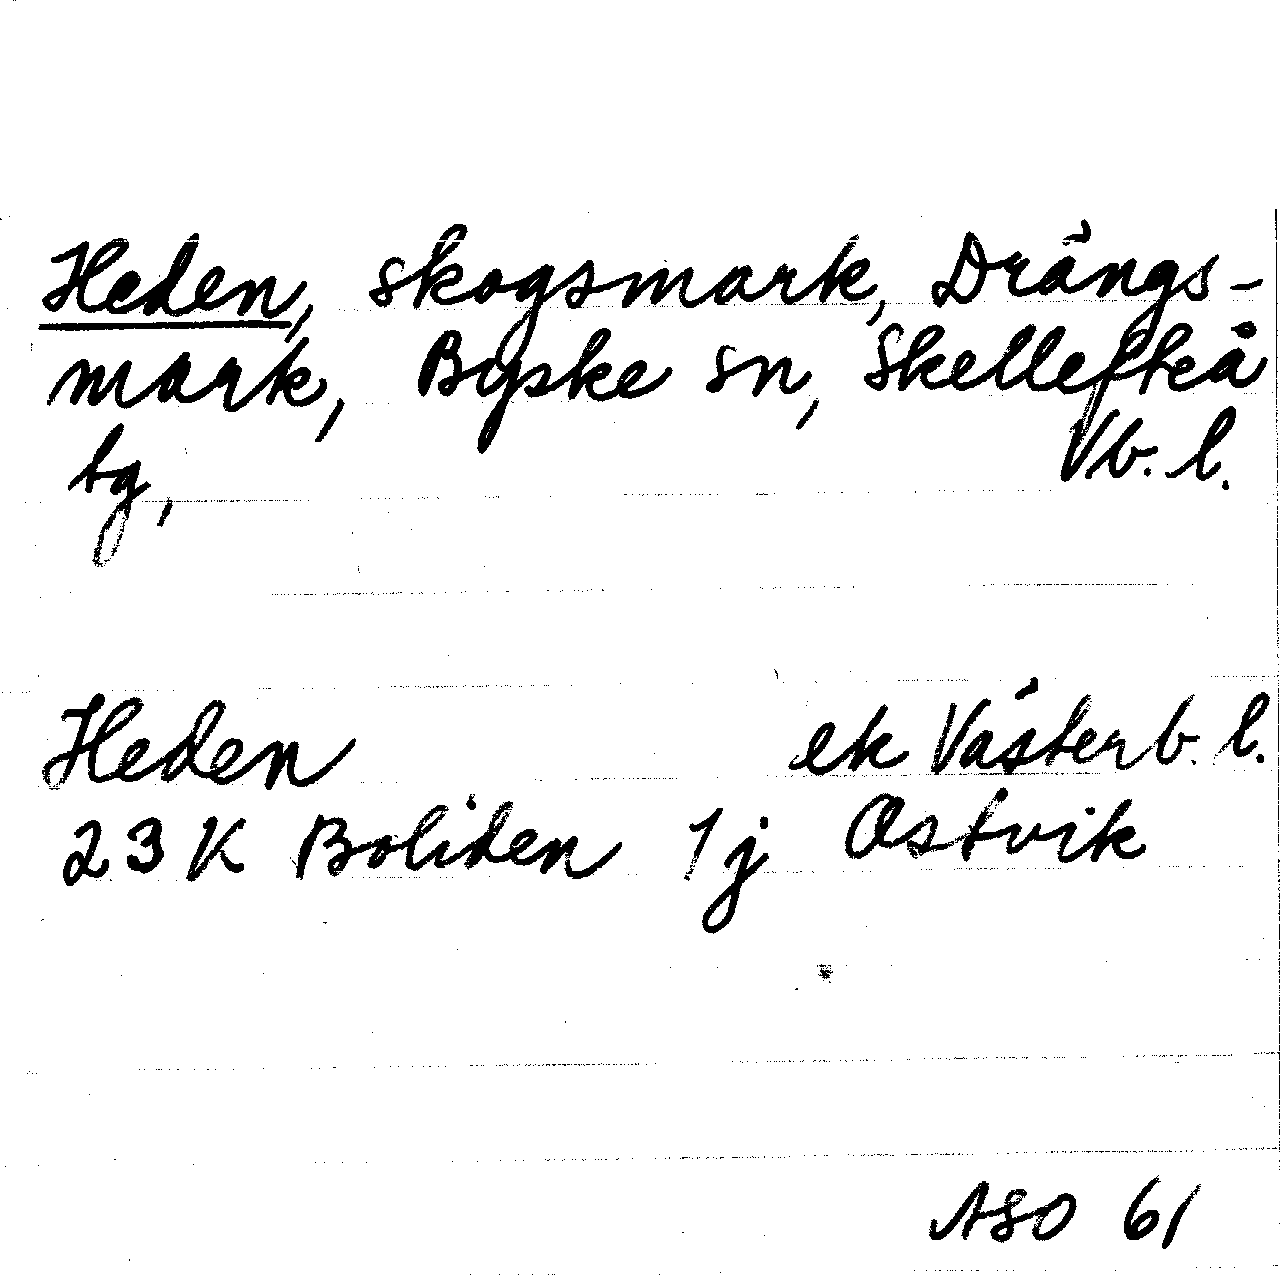 Heden, skogsmark, Drängs-
mark, Byske sn, Skellefteå
tg, Vb. l.
Heden ek Västerb. l.
23 K Boliden 1j Ostvik
ASO 61